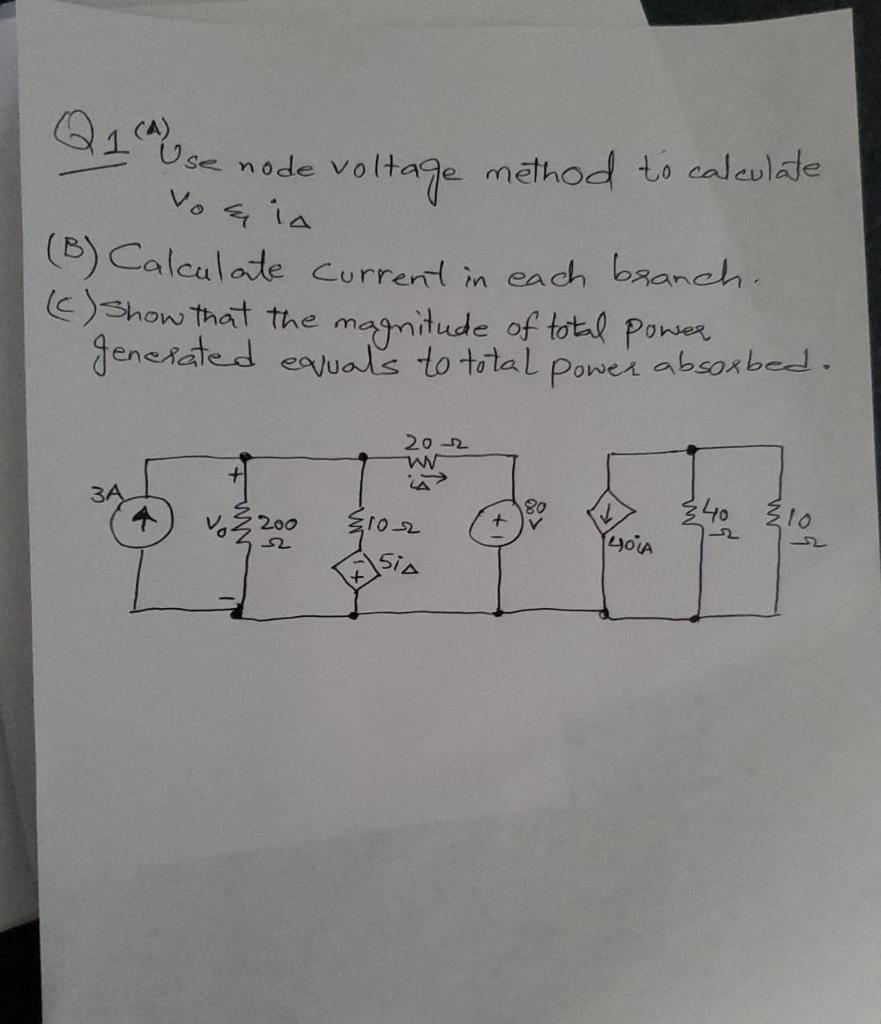 Q1 (A) Use node voltage method to calculate
Vo & i∆
(B) Calculate current in each branch.
(C) Show that the magnitude of total power
generated equals to total power absorbed.
20 Ω
i∆
3A
+
Vo
200
Ω
10 Ω
+
-
80
V
40
Ω
10
Ω
40i∆
-
+
5i∆
-